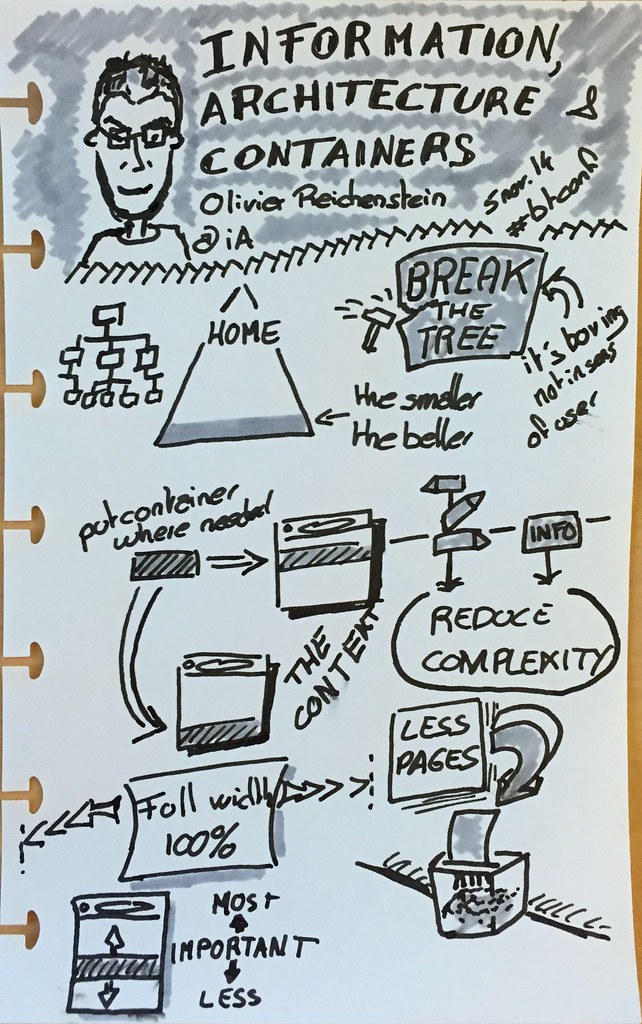 INFORMATION,
ARCHITECTURE &
CONTAINERS
Olivier Reichenstein
@iA
5 nov. 14
#btconf
HOME
BREAK
THE
TREE
it's boring
not in
of user
the smaller
the better
put container
where needed
INFO
THE
CONTEXT
REDUCE
COMPLEXITY
LESS
PAGES
Full width
100%
MOST
IMPORTANT
LESS